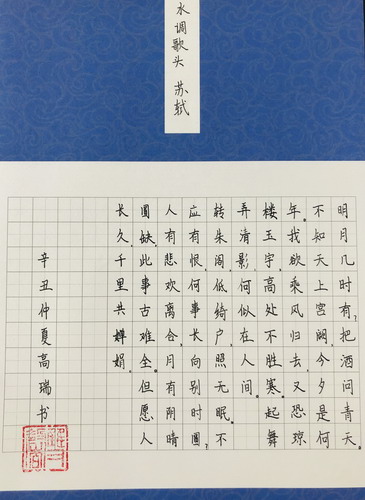 水调歌头 苏轼
明月几时有?把酒问青天。
不知天上宫阙,今夕是何
年。我欲乘风归去,又恐琼
楼玉宇,高处不胜寒。起舞
弄清影,何似在人间。
转朱阁,低绮户,照无眠。不
应有恨,何事长向别时圆?
人有悲欢离合,月有阴晴
圆缺,此事古难全。但愿人
长久,千里共婵娟。
辛丑仲夏高瑞书